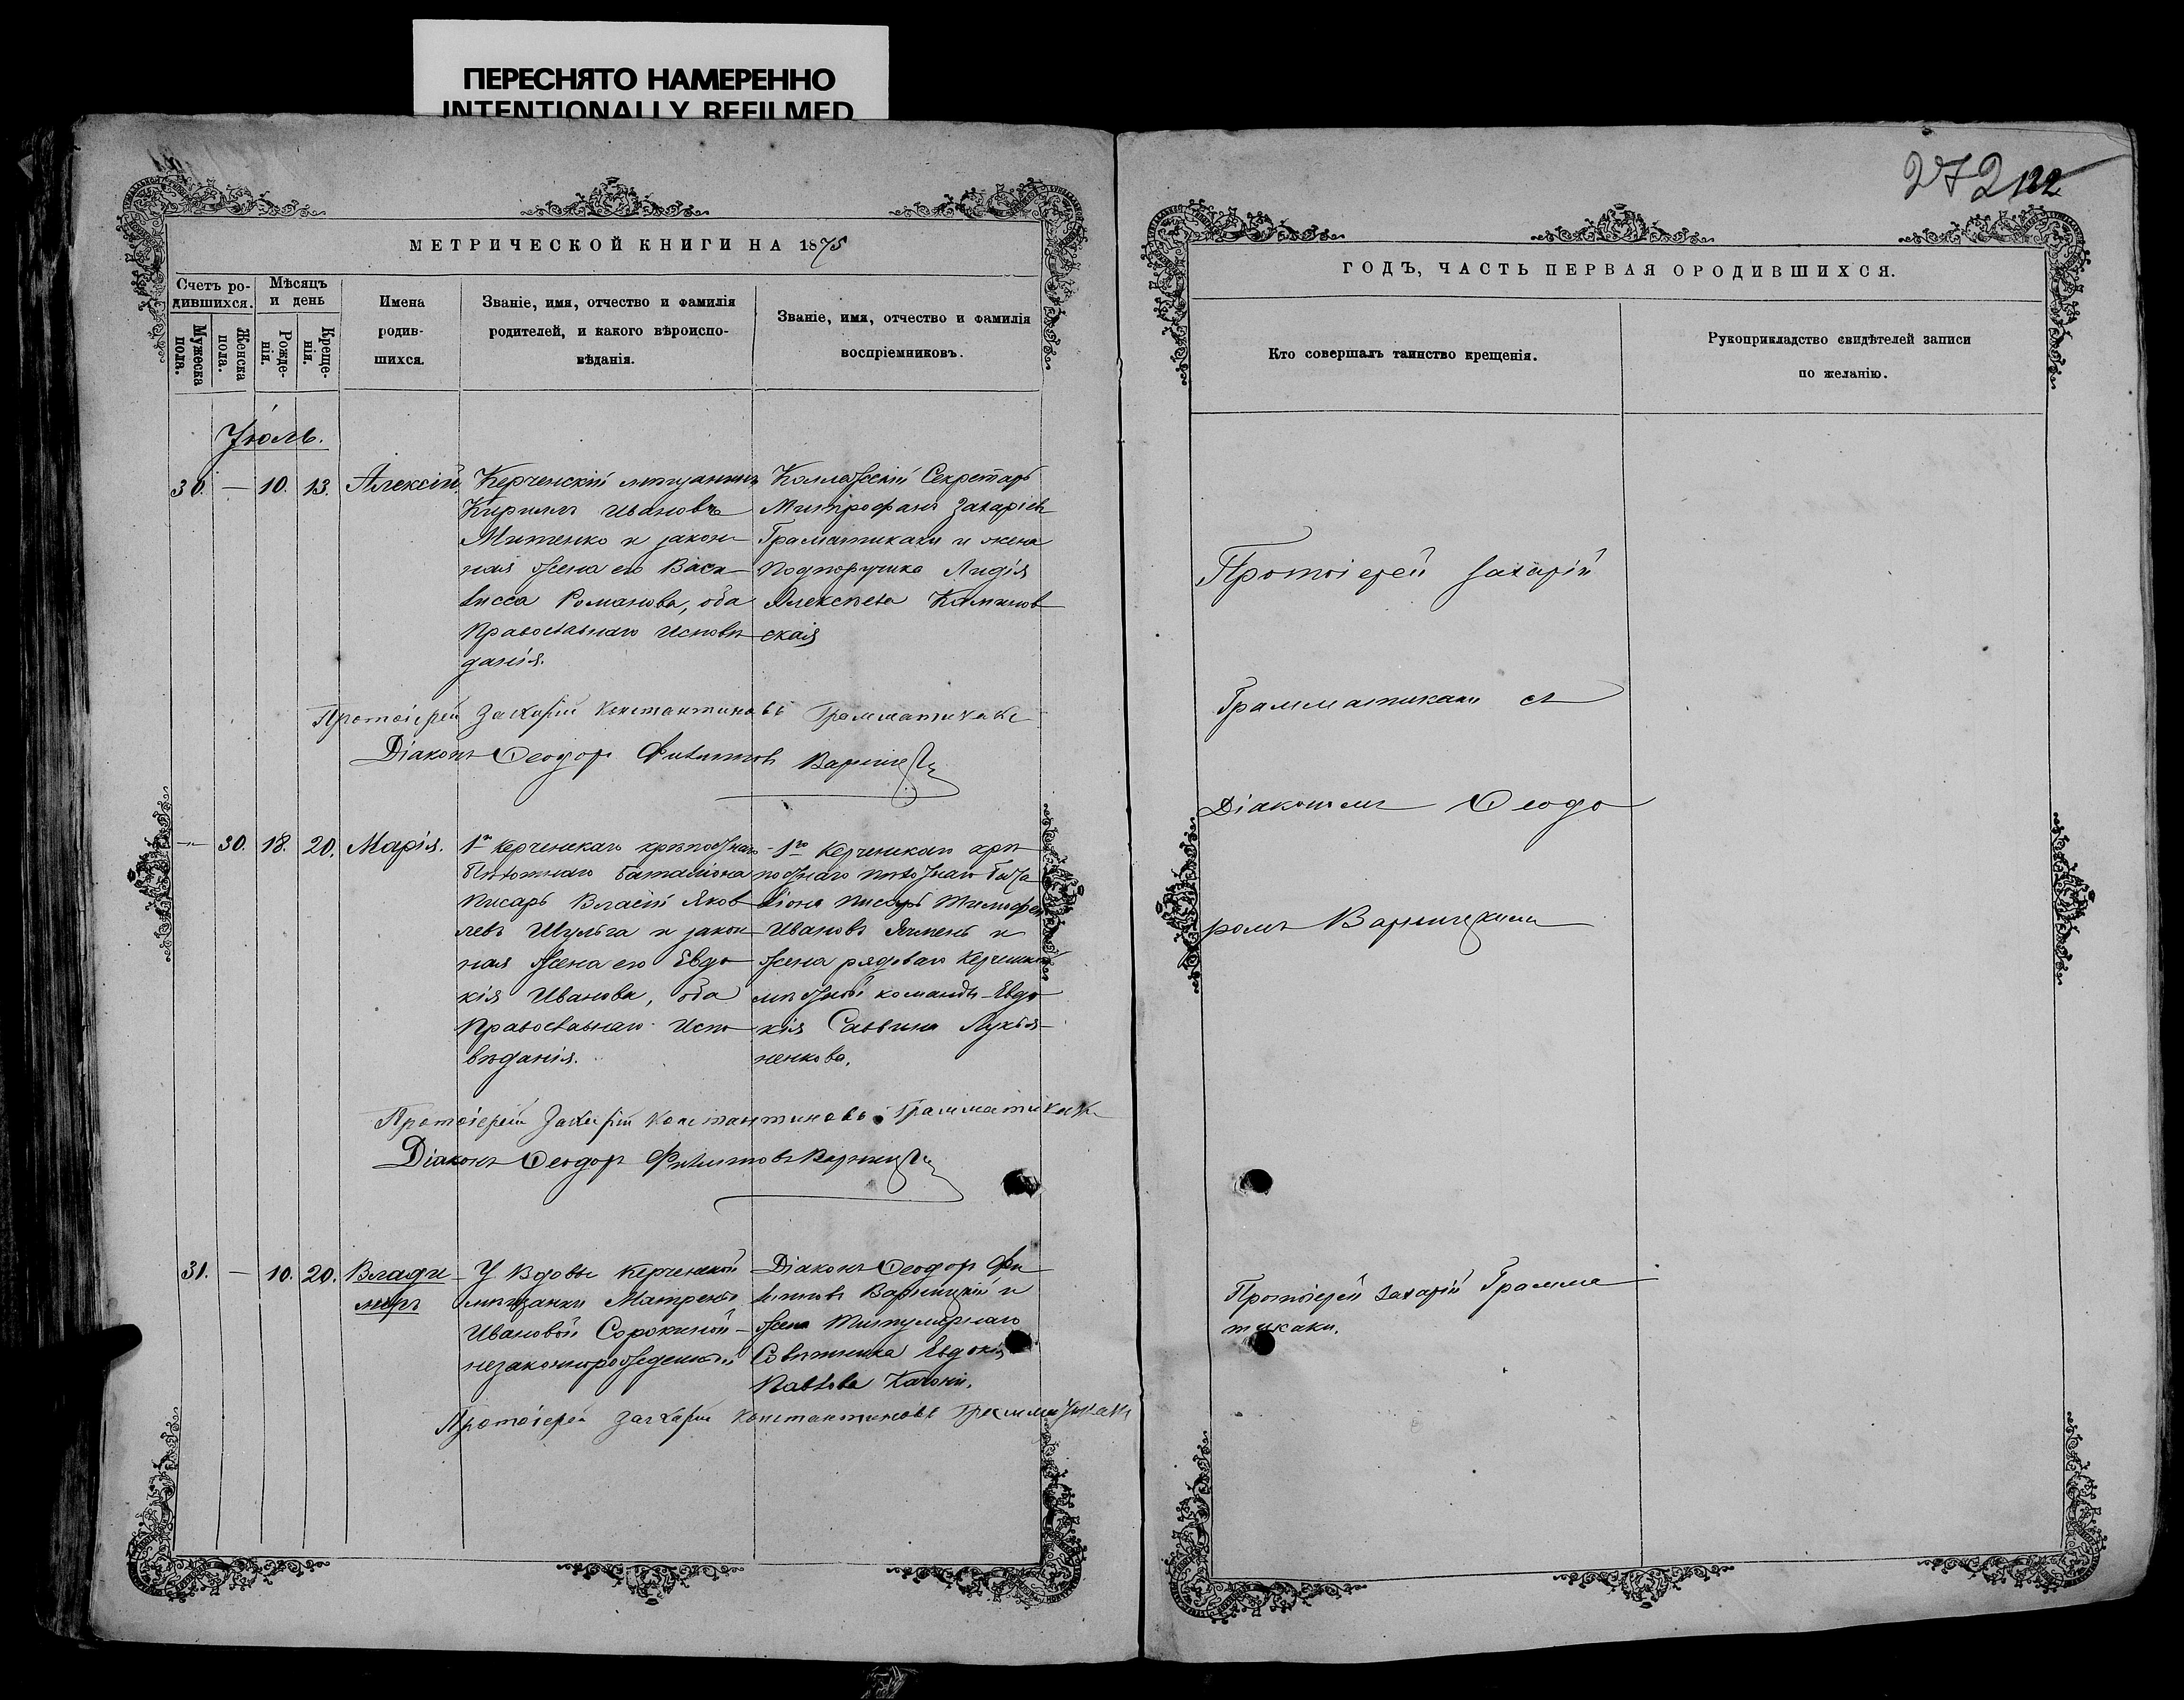 ПЕРЕСНЯТО НАМЕРЕННО
INTENTIONALLY REFILMED
МЕТРИЧЕСКОЙ КНИГИ НА 1875
Счетъ ро-
дившихся.
Мужеска
пола.
Женска
пола.
Мѣсяцъ
и день
Рожде-
нія.
Креще-
нія.
Имена
родив-
шихся.
Званіе, имя, отчество и фамилія
родителей, и какого вѣроиспо-
вѣданія.
Званіе, имя, отчество и фамилія
воспріемниковъ.
Іюль.
30. — 10. 13. Алексій.
Керченскій мѣщанинъ
Кириллъ Ивановъ
Митенко и закон-
ная жена его Васи-
лисса Романова, оба
Православнаго исповѣ-
данія.
Коллежскій Секретарь
Митрофанъ Захаріевъ
Граматикаки и жена
Подпоручика Лидія
Алексѣева
ская
Протоіерей Захарій Константиновъ Грамматикаки
Діаконъ Ѳеодоръ Филипповъ Варницкій
— 30. 18. 20. Марія.
1го Керченскаго крѣпостнаго
Пѣхотнаго баталіона
писарь Власій Яков-
левъ Шульга и закон-
ная жена его Евдо-
кія Иванова, оба
Православнаго испо-
вѣданія.
1го Керченскаго крѣ-
постнаго пѣхотнаго бата-
ліона писарь Тимофей
Ивановъ Ячмень и
жена рядоваго Керченской
мѣстной команды Евдо-
кія Саввина Лукья-
ненкова.
Протоіерей Захарій Константиновъ Грамматикаки
Діаконъ Ѳеодоръ Филипповъ Варницкій
31. — 10. 20. Влади-
миръ
У вдовы Керченской
мѣщанки Матрены
Ивановой Сорокиной
незаконнорожденный
Діаконъ Ѳеодоръ Фи-
липповъ Варницкій и
жена Титулярнаго
Совѣтника Евдокія
Павлова Качони.
Протоіерей Захарій Константиновъ Грамматикаки
272 122
ГОДЪ, ЧАСТЬ ПЕРВАЯ О РОДИВШИХСЯ.
Кто совершалъ таинство крещенія.
Рукоприкладство свидѣтелей записи
по желанію.
Протоіерей Захарій
Грамматикаки съ
Діакономъ Ѳеодо-
ромъ Варницкимъ
Протоіерей Захарій Грамма-
тикаки.